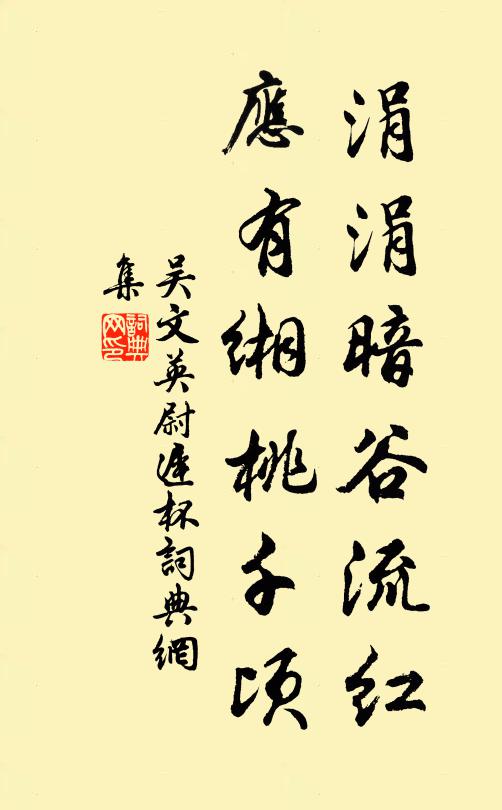 涓涓暗谷流红
應有缃桃千顷
吴文英尉遲杯詞典網
集
詞典网印